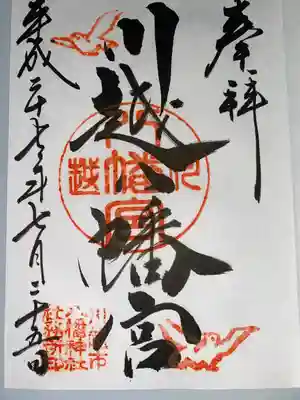 奉拝
川越八幡宮
川越八幡宮
平成二十七年七月二十五日
川越市
八幡神社
社務所印